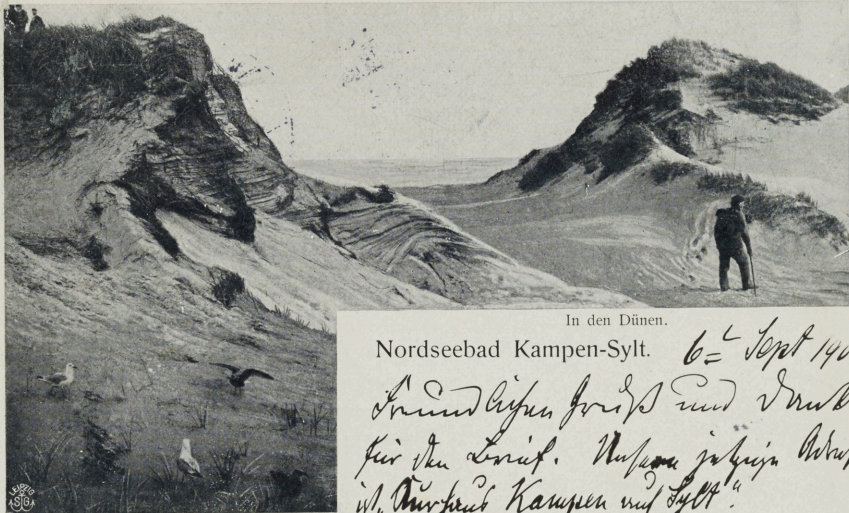 In den Dünen.
Nordseebad Kampen-Sylt.
6= Sept 190
Freundlichen Gruß und Dank
für den Brief. Unsere jetzige Adre
ist „Kurhaus Kampen auf Sylt“.
LEIPZIG